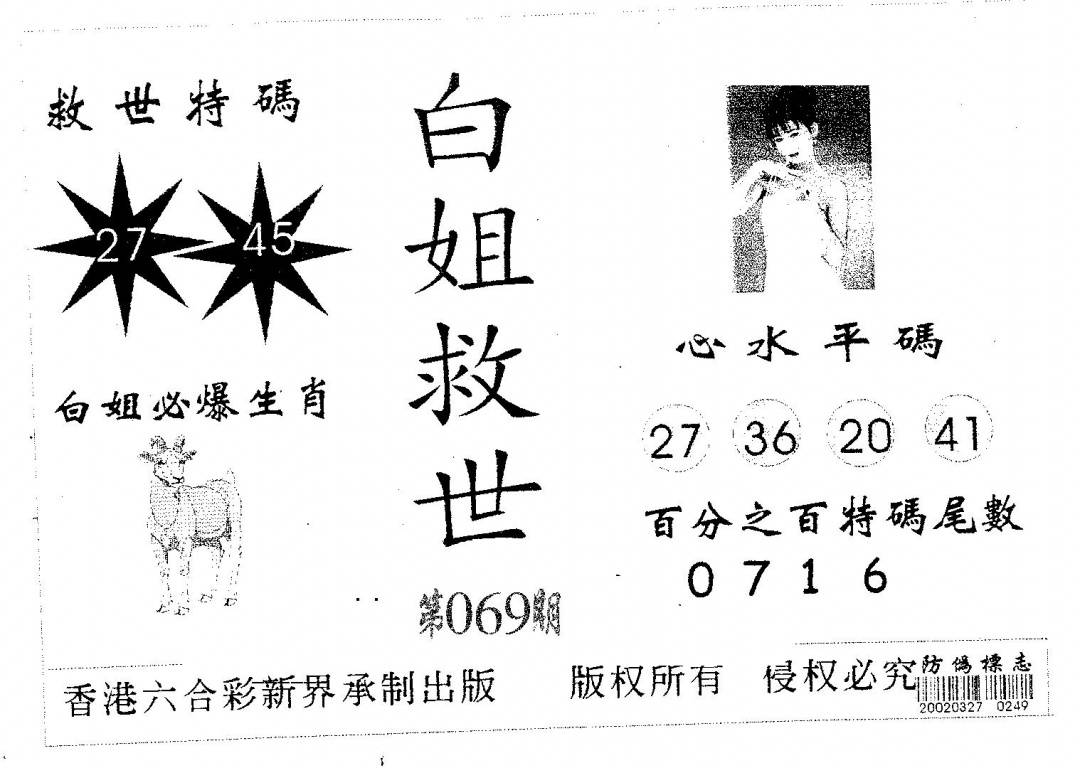 救世特碼
27
45
白姐必爆生肖
白姐救世
第069期
心水平碼
27 36 20 41
百分之百特碼尾數
0 7 1 6
香港六合彩新界承制出版 版权所有 侵权必究
防偽標志
20020327 0249